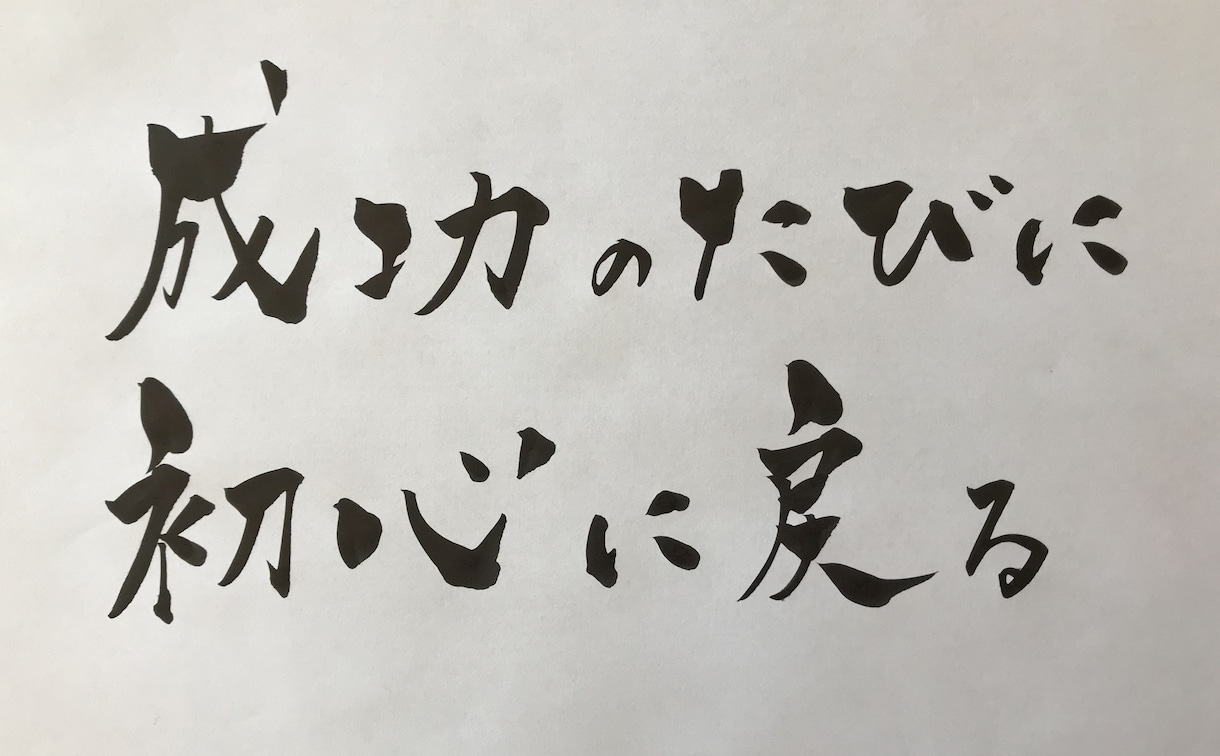 成功のたびに
初心に戻る